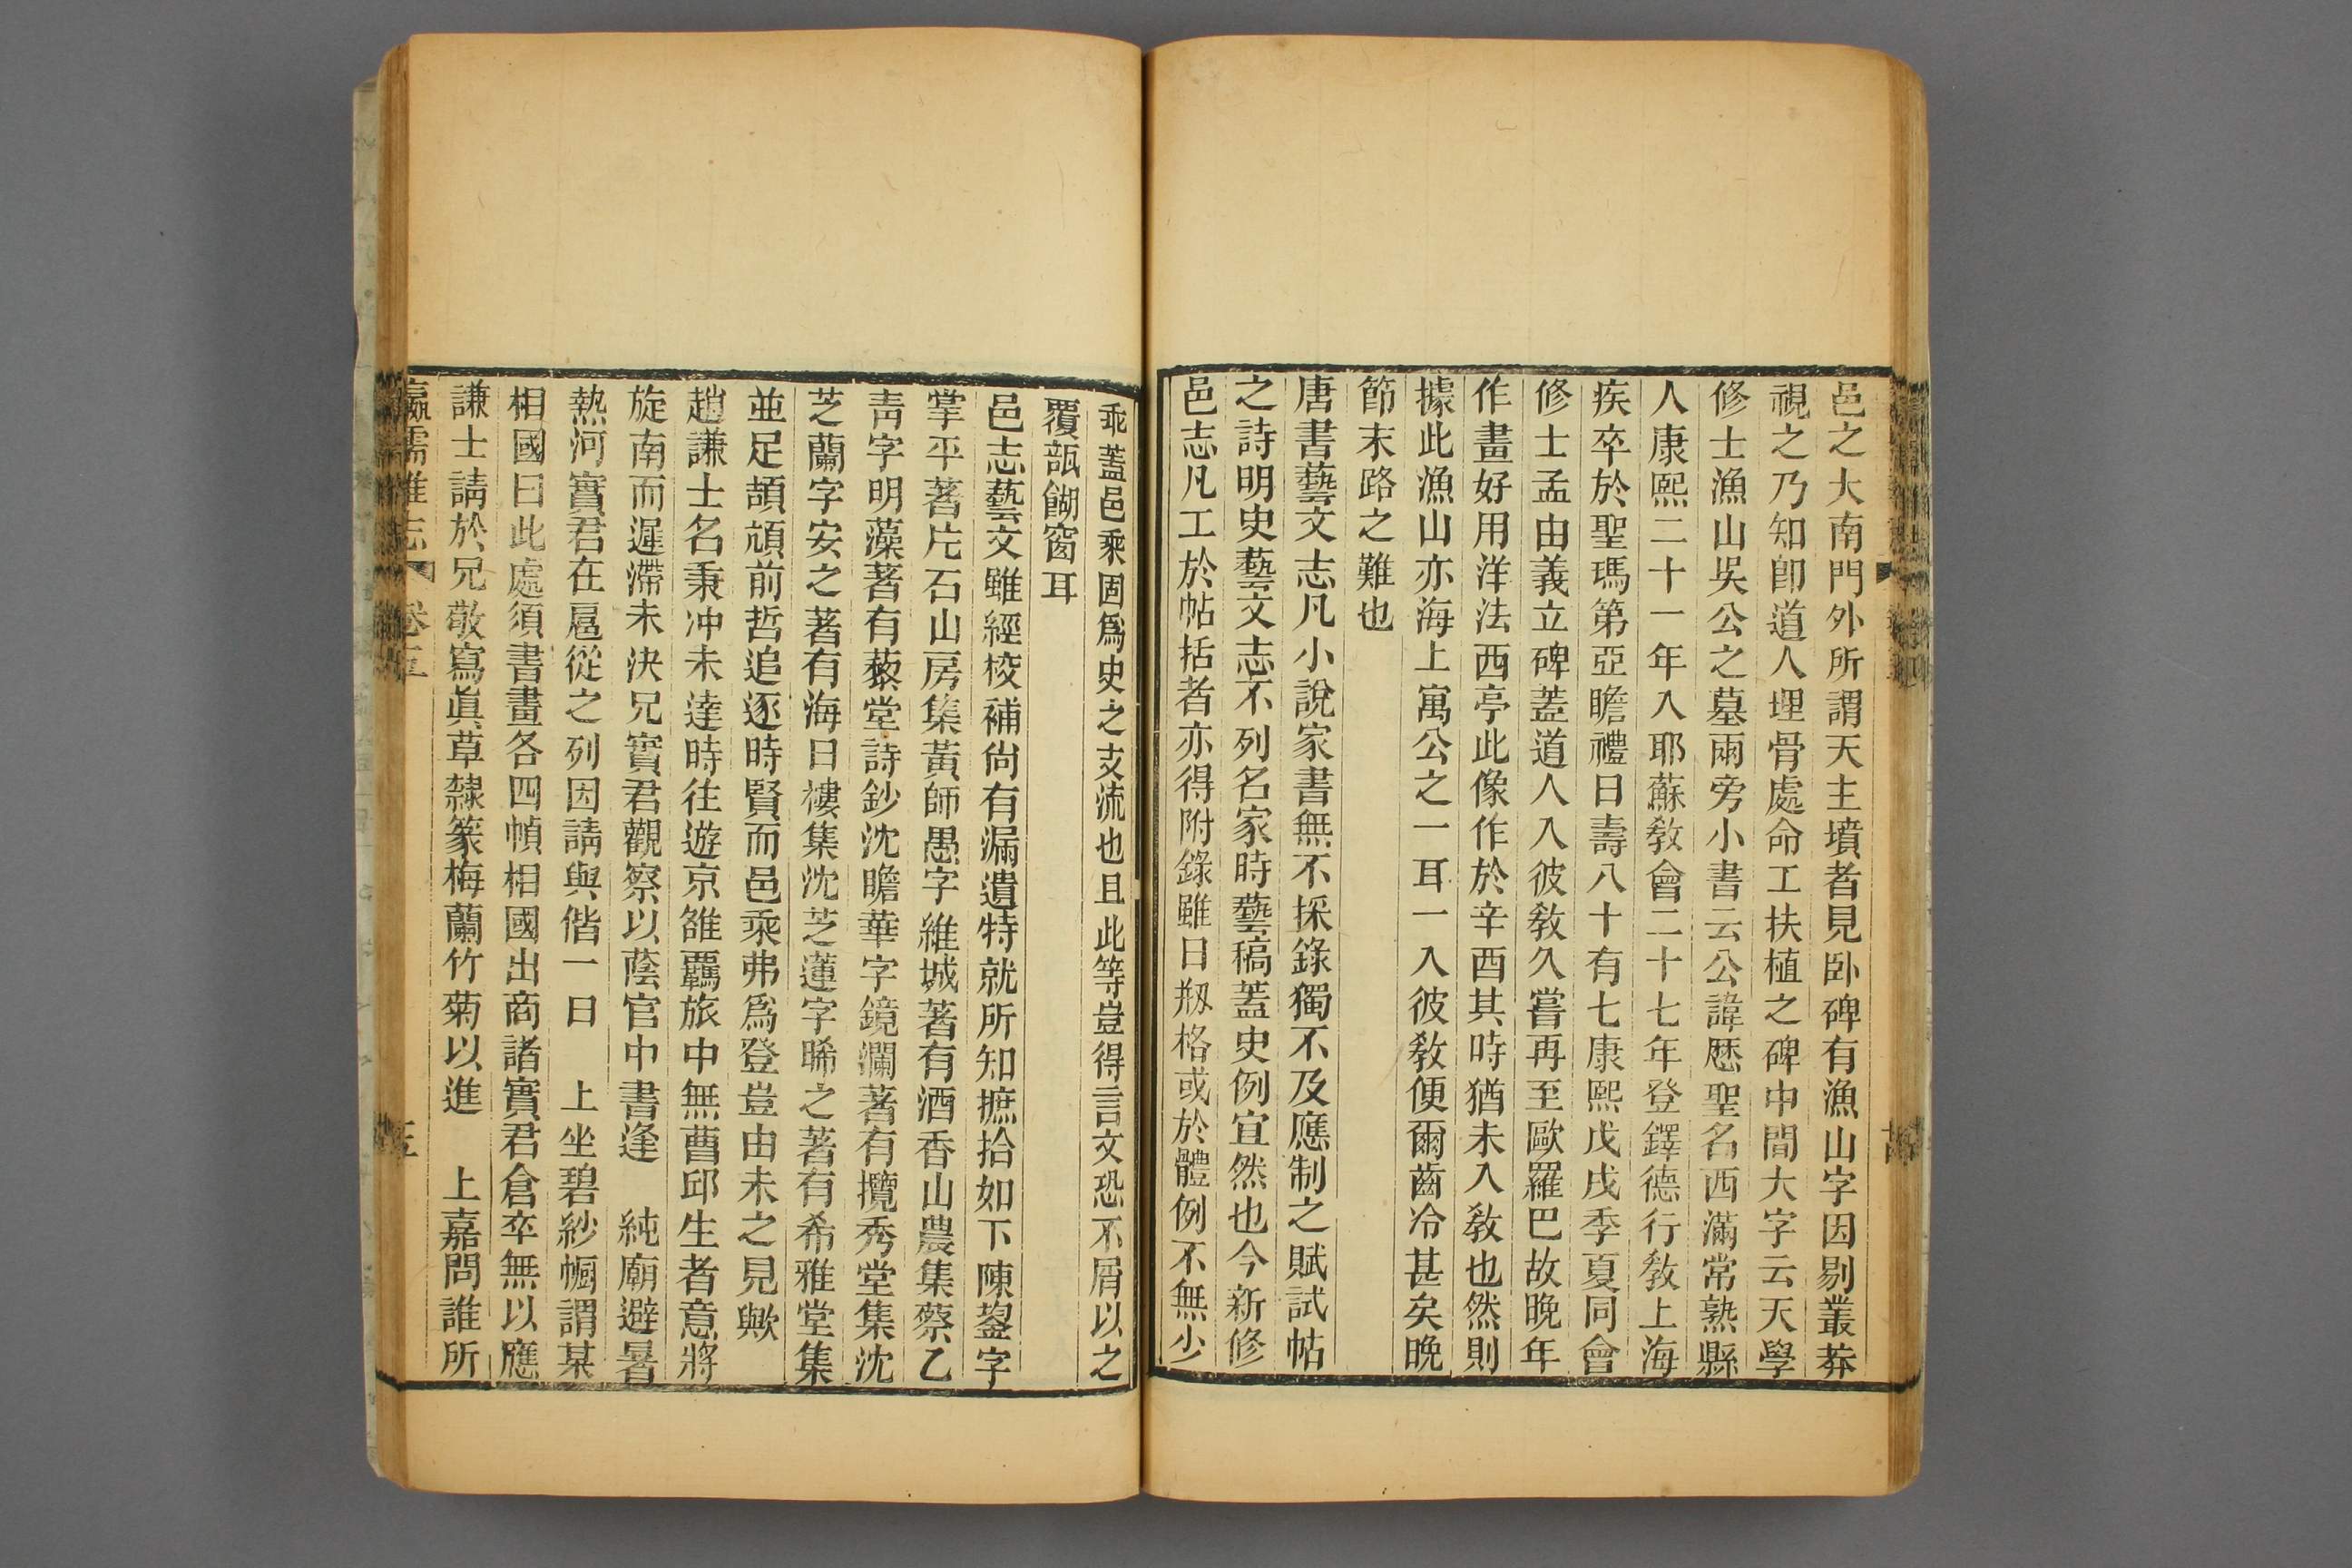 邑之大南門外所謂天主墳者見卧碑有漁山字因剔叢莽
視之乃知卽道人埋骨處命工扶植之碑中間大字云天學
修士漁山吳公之墓兩旁小書云公諱歷聖名西滿常熟縣
人康熙二十一年入耶蘇教會二十七年登鐸德行教上海
疾卒於聖瑪第亞瞻禮日壽八十有七康熙戊戌季夏同會
修士孟由義立碑蓋道人入彼教久嘗再至歐羅巴故晚年
作畫好用洋法西亭此像作於辛酉其時猶未入教也然則
據此漁山亦海上寓公之一耳一入彼教便爾齒冷甚矣晚
節末路之難也
唐書藝文志凡小說家書無不採錄獨不及應制之賦試帖
之詩明史藝文志不列名家時藝稿蓋史例宜然也今新修
邑志凡工於帖括者亦得附錄雖曰剏格或於體例不無少
乖蓋邑乘固爲史之支流也且此等豈得言文恐不屑以之
覆瓿餬窗耳
邑志藝文雖經校補尙有漏遺特就所知摭拾如下陳鋆字
掌平著片石山房集黃師愚字維城著有酒香山農集蔡乙
靑字明藻著有藜堂詩鈔沈瞻華字鏡瀾著有攬秀堂集沈
芝蘭字安之著有海日樓集沈芝蓮字晞之著有希雅堂集
並足頡頏前哲追逐時賢而邑乘弗爲登豈由未之見歟
趙謙士名秉冲未達時往遊京雒羈旅中無曹邱生者意將
旋南而遲滯未決兄實君觀察以蔭官中書逢 純廟避暑
熱河實君在扈從之列因請與偕一日 上坐碧紗幮謂某
相國曰此處須書畫各四幀相國出商諸實君倉卒無以應
謙士請於兄敬寫眞草隸篆梅蘭竹菊以進 上嘉問誰所
瀛壖雜志 卷五